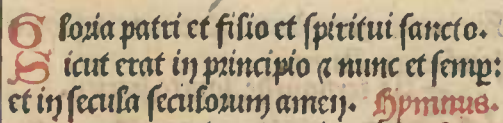 Gloria patri et filio et spiritui sancto.
Sicut erat in principio ⁊ nunc et semp:
et in secula seculorum amen. Hymnus.